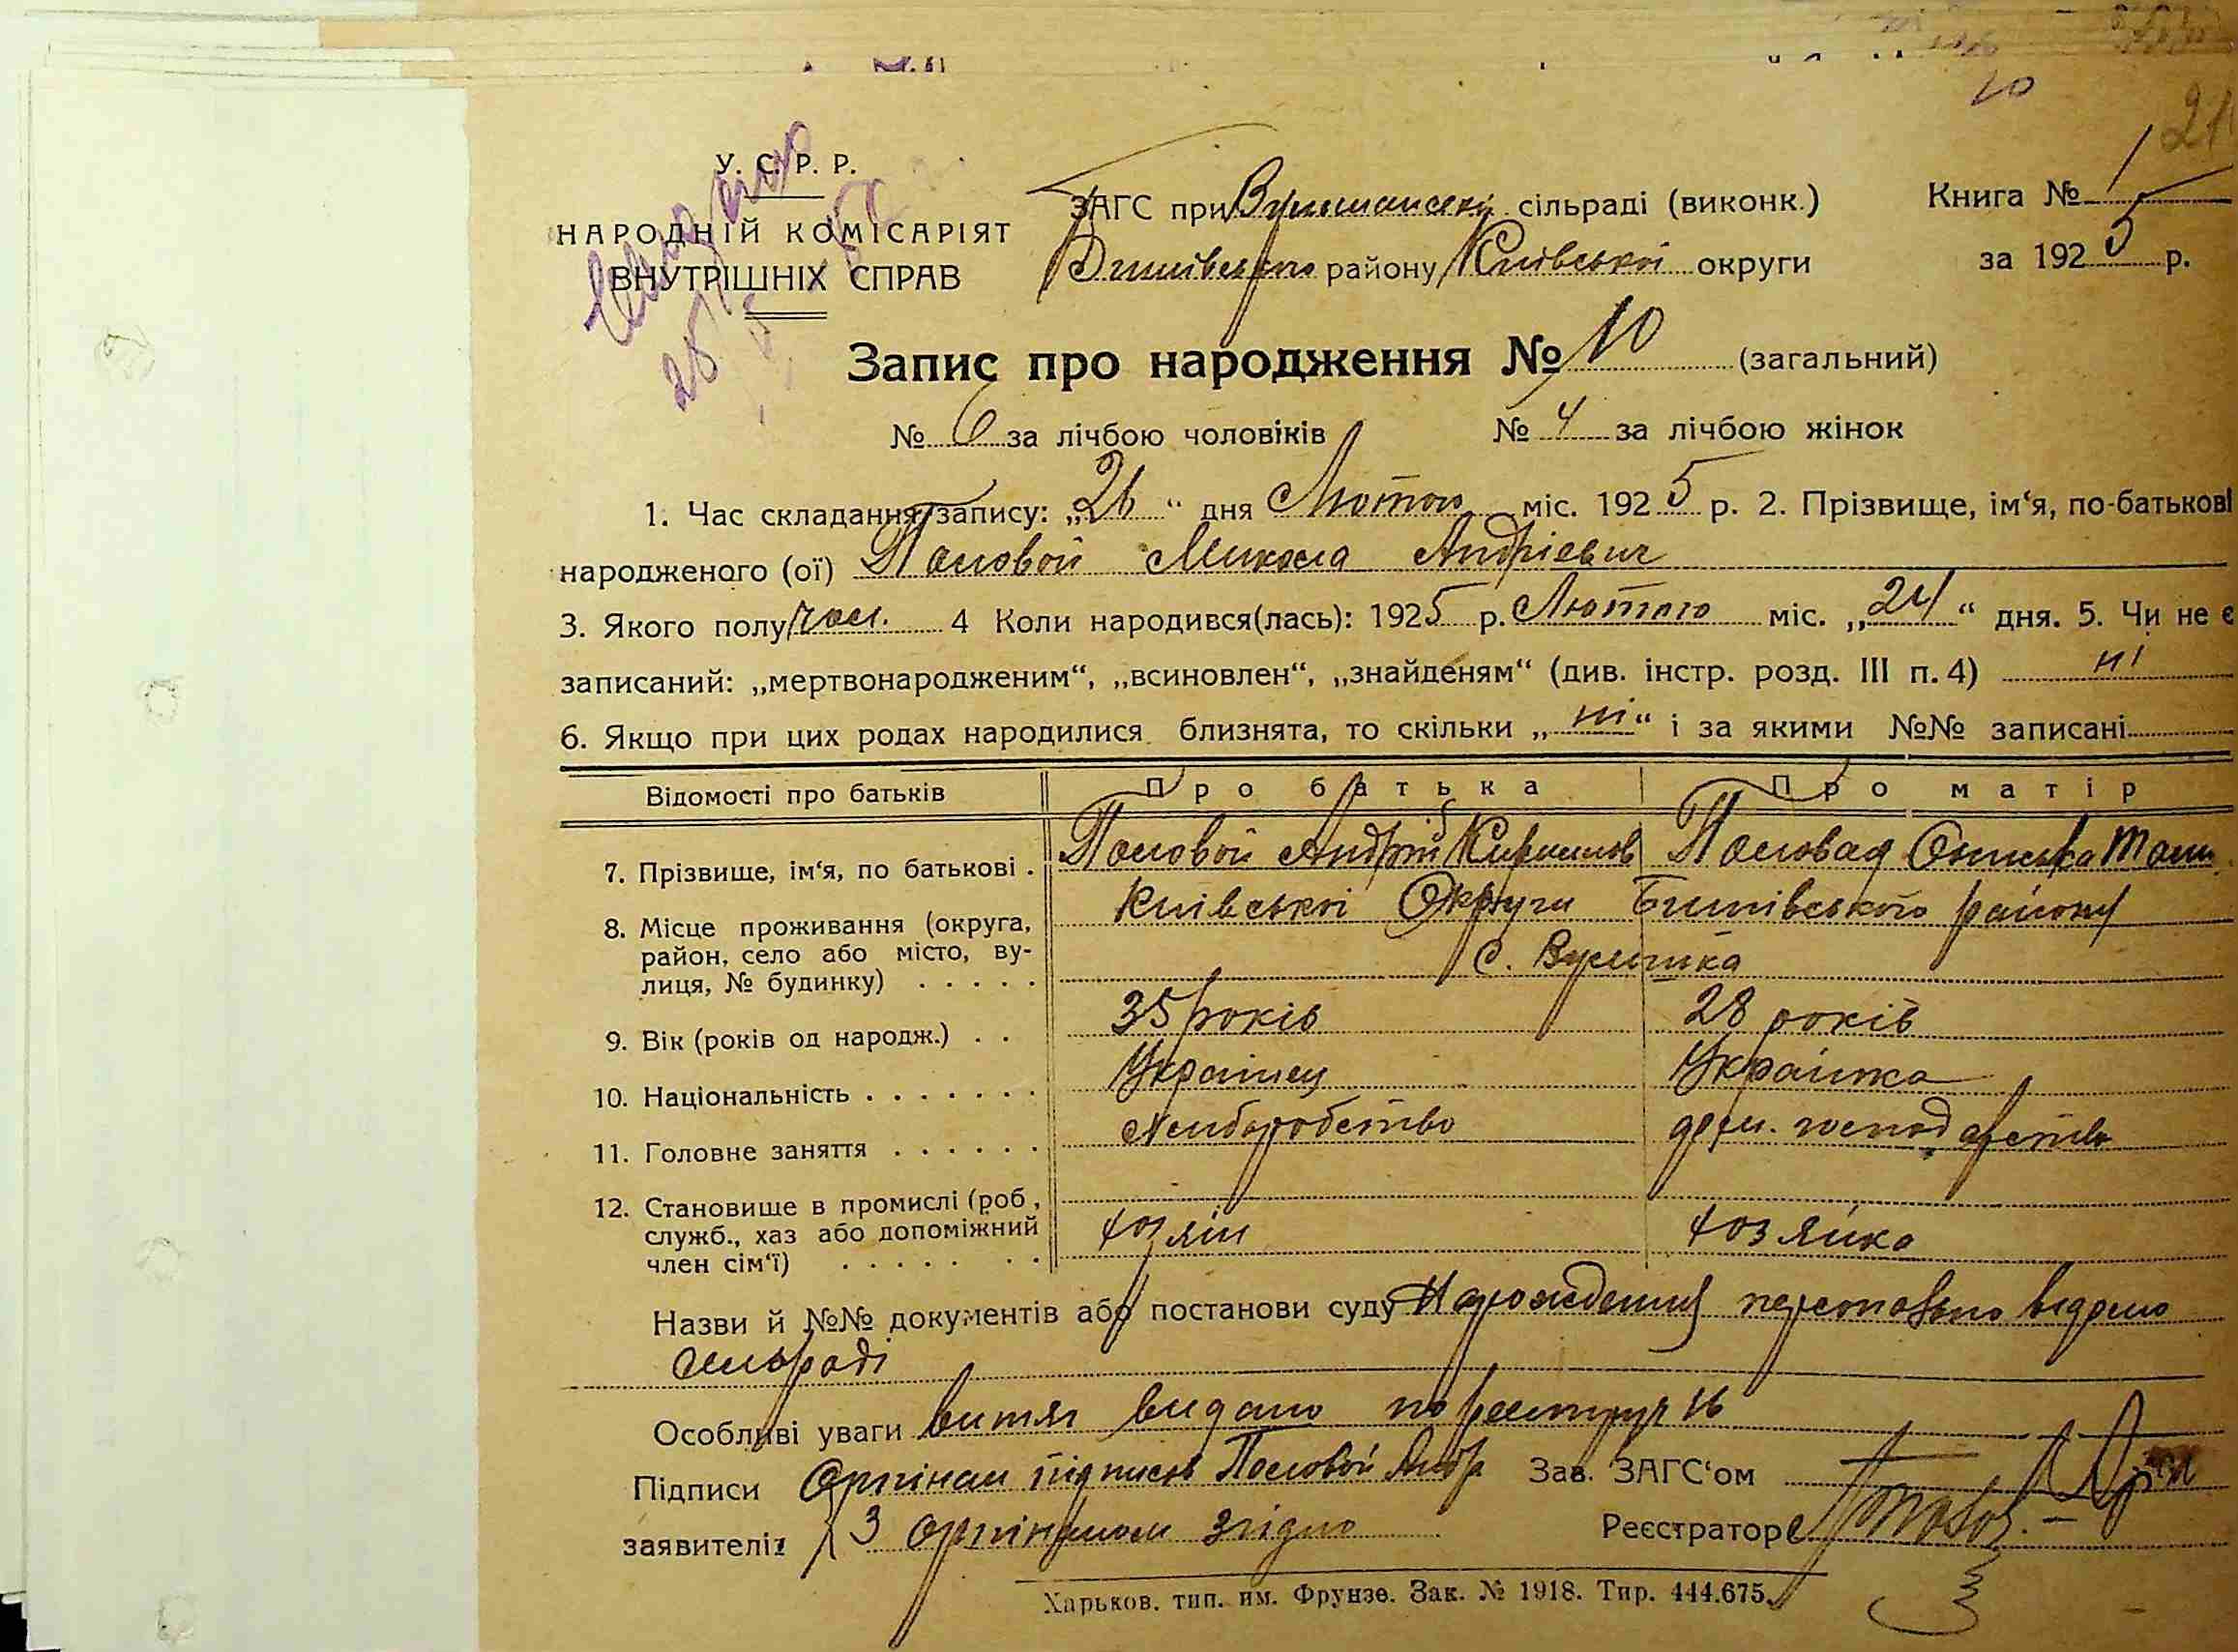 10
21
У. С. Р. Р.
НАРОДНІЙ КОМІСАРІЯТ
ВНУТРІШНІХ СПРАВ
ЗАГС при сільраді (виконк.)
району Київської округи
Книга № 1
за 1925 р.
Запис про народження № 10 (загальний)
№ 6 за лічбою чоловіків № 4 за лічбою жінок
1. Час складання запису: „26“ дня Лютого міс. 1925 р. 2. Прізвище, ім‘я, по-батькові
народженого (ої) Пасовой Микола Андріевич
3. Якого полу чол. 4 Коли народився(лась): 1925 р. Лютого міс. „24“ дня. 5. Чи не є
записаний: „мертвонародженим“, „всиновлен“, „знайденям“ (див. інстр. розд. III п. 4) ні
6. Якщо при цих родах народилися близнята, то скільки „ні“ і за якими №№ записані
Відомості про батьків Про батька Про матір
7. Прізвище, ім‘я, по батькові . Андрій Кирилов
8. Місце проживання (округа, Київськоі Округи Бишівського району
район, село або місто, ву- с.
лиця, № будинку) . . . . .
9. Вік (років од народж.) . . 35 років 28 років
10. Національність . . . . . . . Украінец Украінка
11. Головне заняття . . . . . . Хліборобство дом. господарство
12. Становище в промислі (роб.,
служб., хаз або допоміжний хозяін хозяйка
член сім‘ї) . . . . . . .
Назви й №№ документів або постанови суду Нарождения персонально відомо
сільраді
Особливі уваги витяг видано по реестру
Підписи Оригінал підписав Андр Зав. ЗАГС‘ом
заявителів З оригіналом згідно Реєстратор
Харьков. тип. им. Фрунзе. Зак. № 1918. Тир. 444.675.